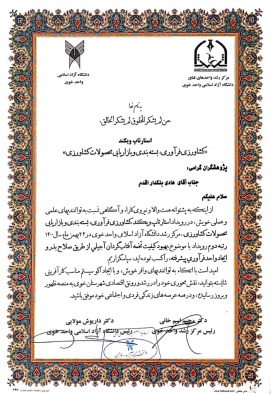 دانشگاه آزاد اسلامی
واحد خوی
مرکز رشد واحدهای فناور
دانشگاه آزاد اسلامی واحد خوی
بنام خدا
من لم یشکر المخلوق لم یشکر الخالق
استارتاپ ویکند
«کشاورزی فرآوری، بسته بندی و بازاریابی محصولات کشاورزی»
پژوهشگران گرامی؛
جناب آقای هادی بنکدار اقدم
سلام علیکم
از اینکه به پشتوانه همت والا و نیروی کارا، و آگاهی نسبت به توانمندیهای علمی
و عملی خویش، در رویداد استارتاپ ویکند کشاورزی فرآوری، بسته بندی و بازاریابی
محصولات کشاورزی، مرکز رشد دانشگاه آزاد اسلامی واحد خوی در بهمن ماه سال ۱۴۰۰
رتبه دوم رویداد با موضوع بهبود کیفیت تخمه آفتابگردان آجیلی از طریق اصلاح بذر و
ایجاد واحد فرآوری پیشرفته، را کسب نموده اید، سپاسگزاریم.
امید است با اتکاء به توانمندیهای وافر خویش، و با ایجاد اکو سیستم مناسب کارآفرینی
بتوانید، نقش محوری خود را در رشد و رونق اقتصادی شهرستان خوی به منصه ظهور
و بروز رسانیده، و در همه عرصه های زندگی فردی و اجتماعی خود موفق باشید.
دکتر داریوش مولایی
رئیس دانشگاه آزاد اسلامی واحد خوی
دکتر خانی
رئیس مرکز رشد واحد خوی